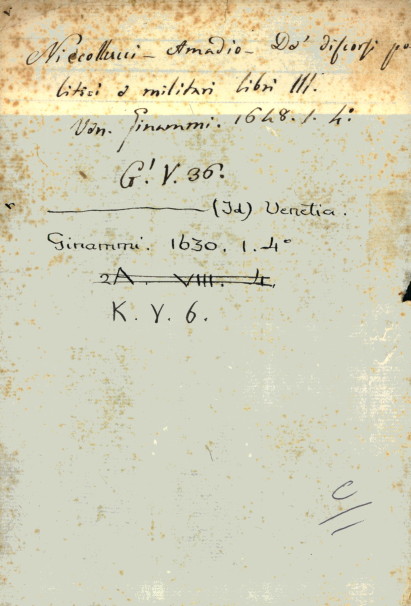 Niccollucci - Amadio - De' discorsi po=
litici e militari libri III.
Ven. Ginammi. 1648. 1. 4.°
G'. V. 36.
——— (Id) Venetia.
Ginammi. 1630. 1. 4°
2A. VIII. 4.
K. V. 6.
C